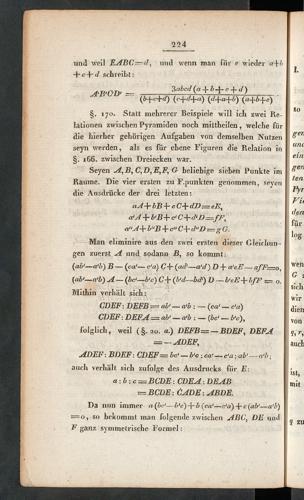 224
und weil EABC=d, und wenn man für e wieder a+b
+c+d schreibt:
A'B'C'D' = 3abcd (a+b+c+d) / (b+c+d) (c+d+a) (d+a+b) (a+b+c)
§. 170. Statt mehrerer Beispiele will ich zwei Re-
lationen zwischen Pyramiden noch mittheilen, welche für
die hierher gehörigen Aufgaben von demselben Nutzen
seyn werden, als es für ebene Figuren die Relation in
§. 166. zwischen Dreiecken war.
Seyen A, B, C, D, E, F, G beliebige sieben Punkte im
Raume. Die vier ersten zu F.punkten genommen, seyen
die Ausdrücke der drei letzten:
aA+bB+cC+dD=eE,
a'A+b'B+c'C+d'D=fF,
a''A+b''B+c''C+d''D=gG.
Man eliminire aus den zwei ersten dieser Gleichun-
gen zuerst A und sodann B, so kommt:
(ab'—a'b) B — (ca'—c'a) C + (ad'—a'd) D + a'eE — afF=0,
(ab'—a'b) A — (bc'—b'c) C + (b'd—bd') D — b'eE + bfF = 0.
Mithin verhält sich:
CDEF: DEFB = ab' — a'b : — (ca' — c'a)
CDEF: DEFA = ab' — a'b : — (bc' — b'c),
folglich, weil (§. 20. a.) DEFB = — BDEF, DEFA
= — ADEF,
ADEF: BDEF: CDEF = bc' — b'c : ca' — c'a : ab' — a'b;
auch verhält sich zufolge des Ausdrucks für E:
a : b : c = BCDE : CDEA : DEAB
= BCDE : CADE : ABDE.
Da nun immer a (bc'—b'c) + b (ca'—c'a) + c (ab'—a'b)
=0, so bekommt man folgende zwischen ABC, DE und
F ganz symmetrische Formel: